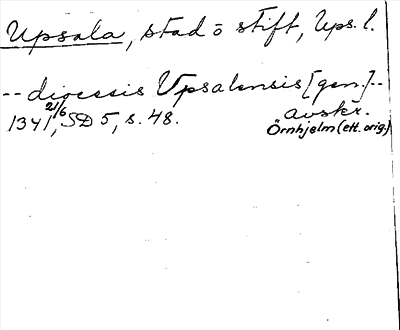 Upsala, stad o stift, Ups. l.
-- diocesis Vpsalensis [gen.] --
1341 21/6, SD 5, s. 48.
avskr.
Örnhjelm (ett. orig.)